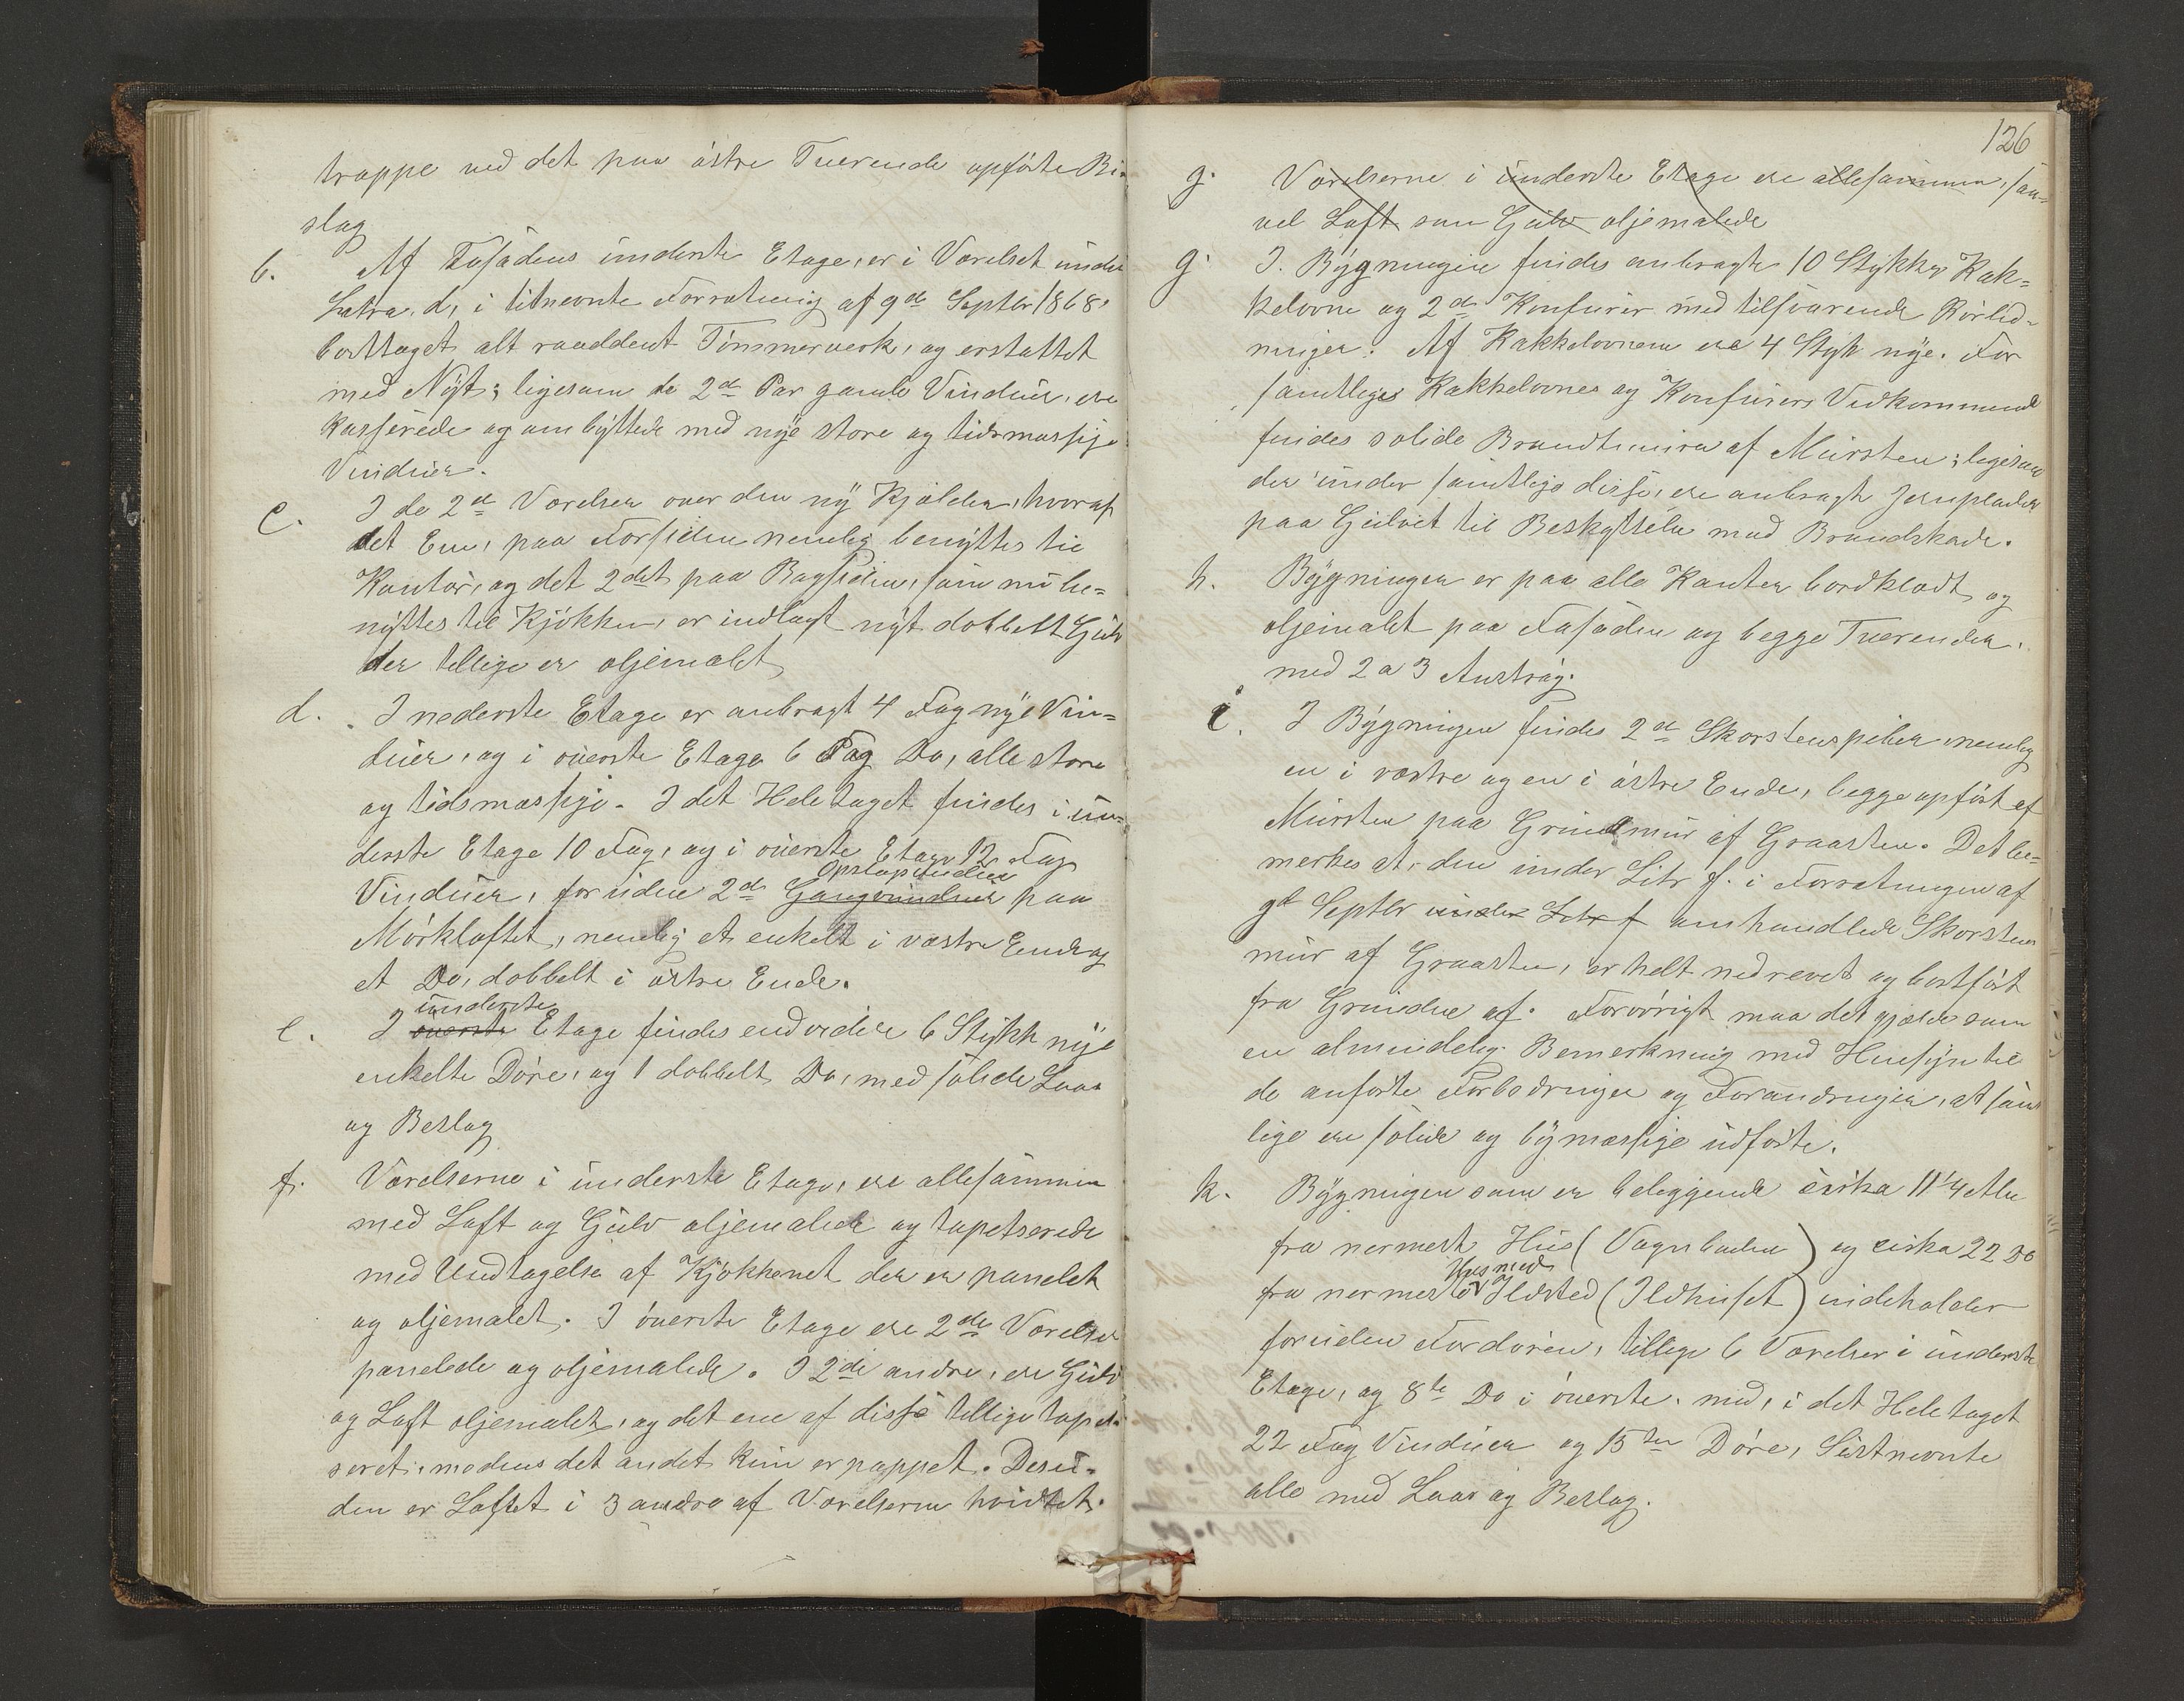 trappe ved det paa östre Tverende opförte Bi-
slag
b. Af Fasadens underste Etage, er i Værelset under
Latra. d, i titnevnte Forretning af 9de Septbr 1868.
borttaget alt raaddent Tömmerverk, og erstattet
med Nyt; ligesom de 2de Par gamle Vinduer, ere
kasserede og ombyttede med nye store og tidsmæssige
Vinduer.
c. I de 2de Værelser over den ny Kjælder, hvoraf
det Ene, paa Forsiden nemlig benyttes til
Kontor, og det 2det paa Bagsiden, som nu be=
nyttes til Kjökken, er indlagt nyt dobbelt Gulv
der tillige er oljemalet
d. I nederste Etage er anbragt 4 Fag nye Vin=
duer, og i överste Etage 6 Fag Do, alle store
og tidsmæssige. I det Heletaget findes i un=
derste Etage 10 Fag, og i överste Etage 12 Fag
Opslagsvinduer
Vinduer, foruden 2de Gangvinduer paa
Mörkloftet, nemlig et enkelt i væstre Ende og
et Do, dobbelt i östre Ende.
underste
e. I överste Etage findes endvidere 6 Stykk nye
enkelte Döre, og 1 dobbelt Do, med solide Laas
og Beslag
f. Værelserne i underste Etage, ere allesammen
med Loft og Gulv oljemalede og tapetserede
med Undtagelse af Kjökkenet der er panelet
og oljemalet. I överste Etage ere 2de Værelser
panelede og oljemalede. I 2de andre, ere Gulv
og Loft oljemalet, og det ene af disse tillige tapet-
seret, medens det andet kun er pappet. Desu-
den er Loftet i 3 andre af Værelserne hvidtet.
126
g. Værelserne i underste Etage ere allesammen, saa-
vel Loft som Gulv oljemalede
g. I. Bygningen findes anbragt 10 Stykker Kak=
kelovne og 2de Komfurer med tilsvarende Rörled-
ninger. Af Kakkelovnene ere 4 Styk nye. For
samtliges Kakkelovnes og Komfurers Vedkommende
findes solide Brandtmure af Mursten; ligesom
der under samtlige disse, ere anbragt Jernplader
paa Gulvet til Beskyttelse mod Brandskade.
h. Bygningen er paa alle Kanter bordklædt og
oljemalet paa Fasaden og begge Tverender,
med 2 a 3 Anströg.
i. I Bygningen findes 2de Skorstenspiber nemlig
en i væstre og en i östre Ende, begge opfört af
Mursten paa Grundmur af Graasten. Det be=
merkes at, den under Litr f. i Forretningen af
9de Septbr under Litr f omhandlede Skorstens
mur af Graasten, er helt nedrevet og bortfört
fra Grunden af. Forövrigt maa det gjælde som
en almindelig Bemerkning med Hensyn til
de anförte Forbedringer og Forandringer, at samt
lige ere solide og bymæssige udförte.
k. Bygningen som er beliggende cirka 11¼ Alen
fra nærmest Hus (Vognboden) og cirka 22 Do
Hus med
fra nermeste Ildsted (Ildhuset) indeholder
foruden Fordören, tillige 6 Værelser i underste
Etage, og 8te Do i överste, med, i det Hele taget
22 Fag Vinduer og 15ten Döre, Sistnevnte
alle med Laas og Beslag.